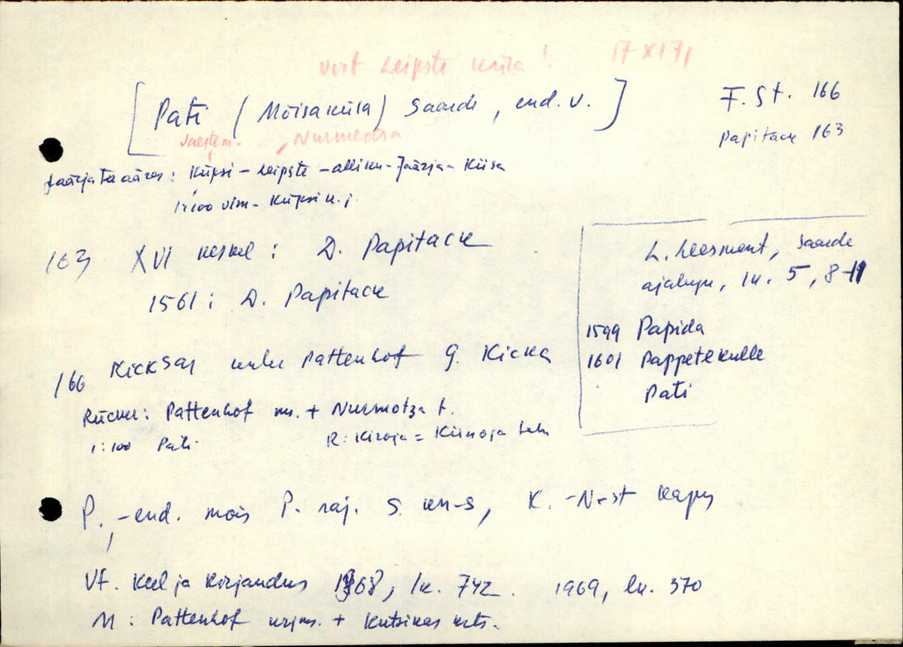 vrt Leipste küla! 17 XI 71
[Pati (Mõisaküla) Saarde, end. v.]
F. St. 166
Papitack 163
, Nurmedsa
: Küpsi - Leipste - Alliku - Jäärja - Kiisa
1:100 vim - Küpsi k.;
163 XVI keskel: D. Papitack
1561: D. Papitack
L. Leesment, Saarde
ajalugu, lk. 5, 8-11
1599 Papida
1601 Pappetekulle
Pati
166 Kicksal Pattenhof G. Kicka
Rücker: Pattenhof m. + Nurmotza t.
1:100 Pati R: Kiroja = Kiinoja talu
P., -end. mõis P. raj. S. kn-s, K. -N-st kagus
Vt. Keel ja Kirjandus 1968, lk. 742. 1969, lk. 370
M: Pattenhof + Kutsikas